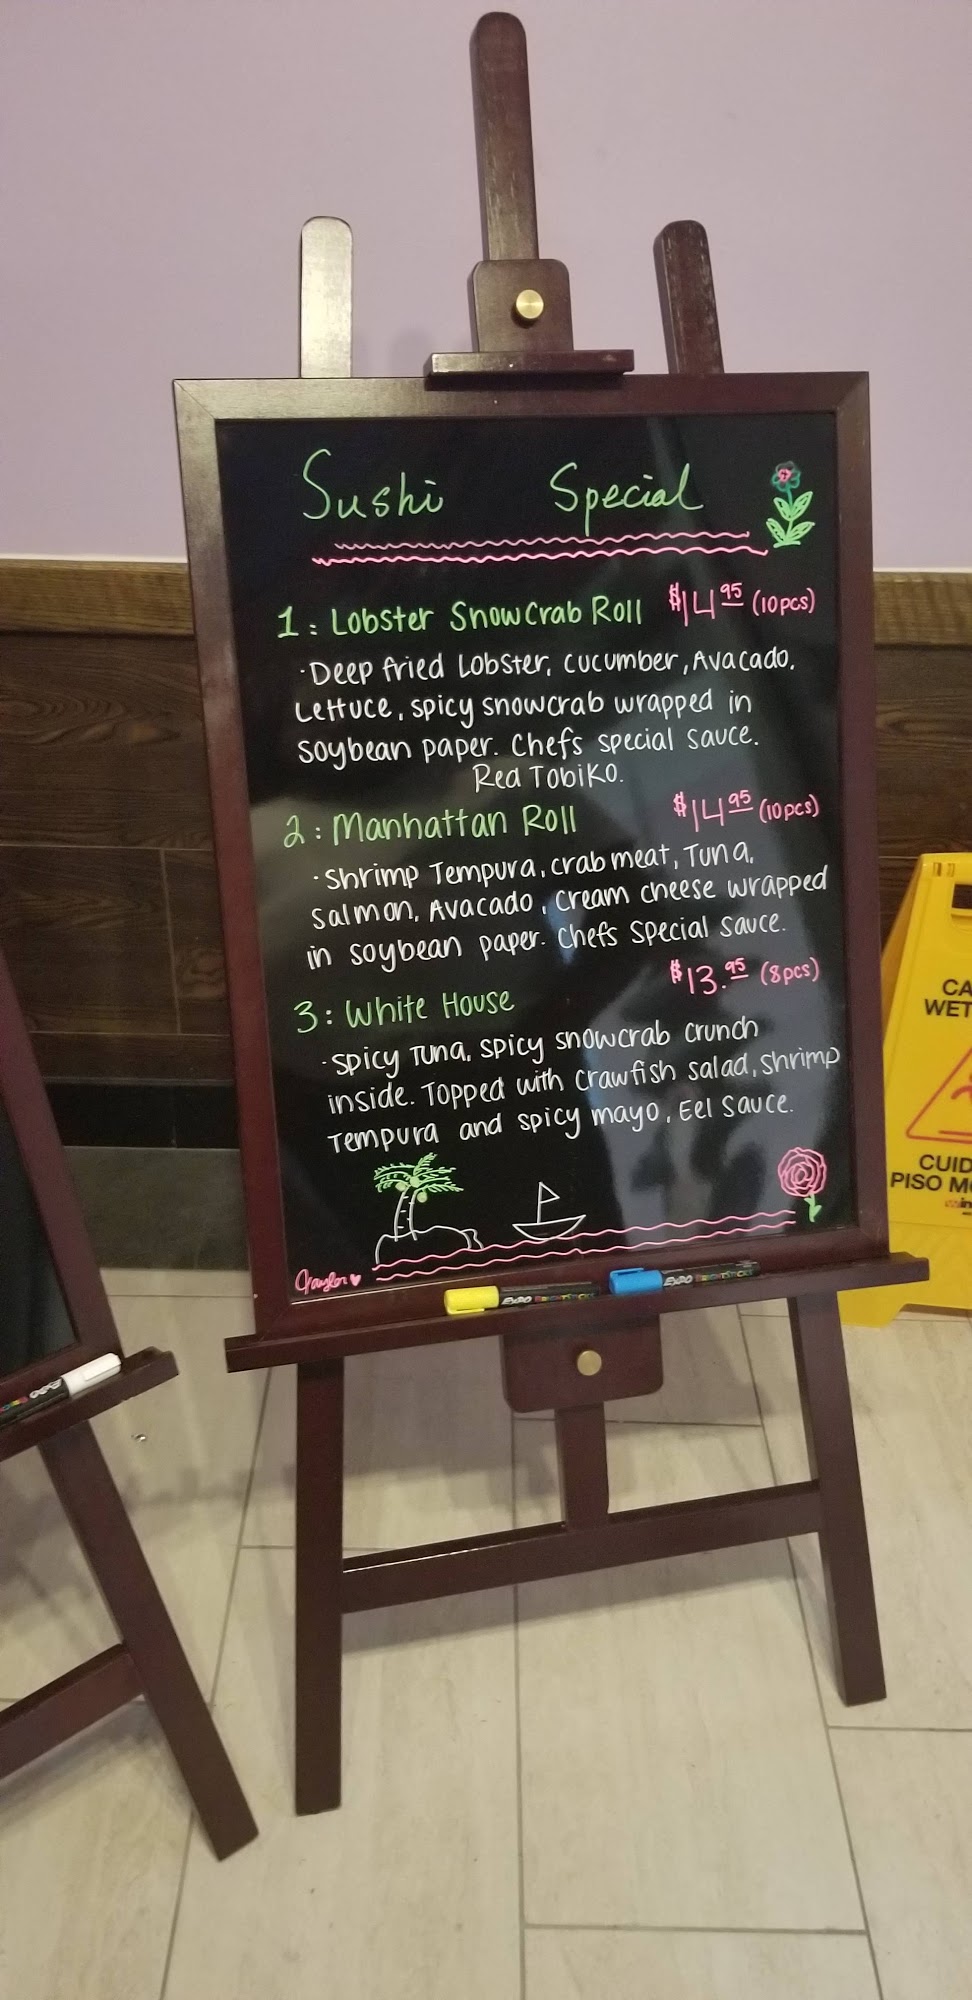 Sushi Special
1: Lobster SnowCrab Roll $14.95 (10pcs)
·Deep fried Lobster, cucumber, Avacado,
Lettuce, spicy snowcrab wrapped in
soybean paper. Chefs special sauce.
Red Tobiko.
2: Manhattan Roll $14.95 (10pcs)
·Shrimp Tempura, crab meat, Tuna,
salmon, Avacado, cream cheese wrapped
in soybean paper. Chefs special sauce.
3: White House $13.95 (8pcs)
·Spicy Tuna, spicy snowcrab crunch
inside. Topped with crawfish salad, shrimp
Tempura and spicy mayo, Eel sauce.
EXPO BRIGHTSTICKS
EXPO BRIGHTSTICKS
EXPO
CA
WET
CUID
PISO MO